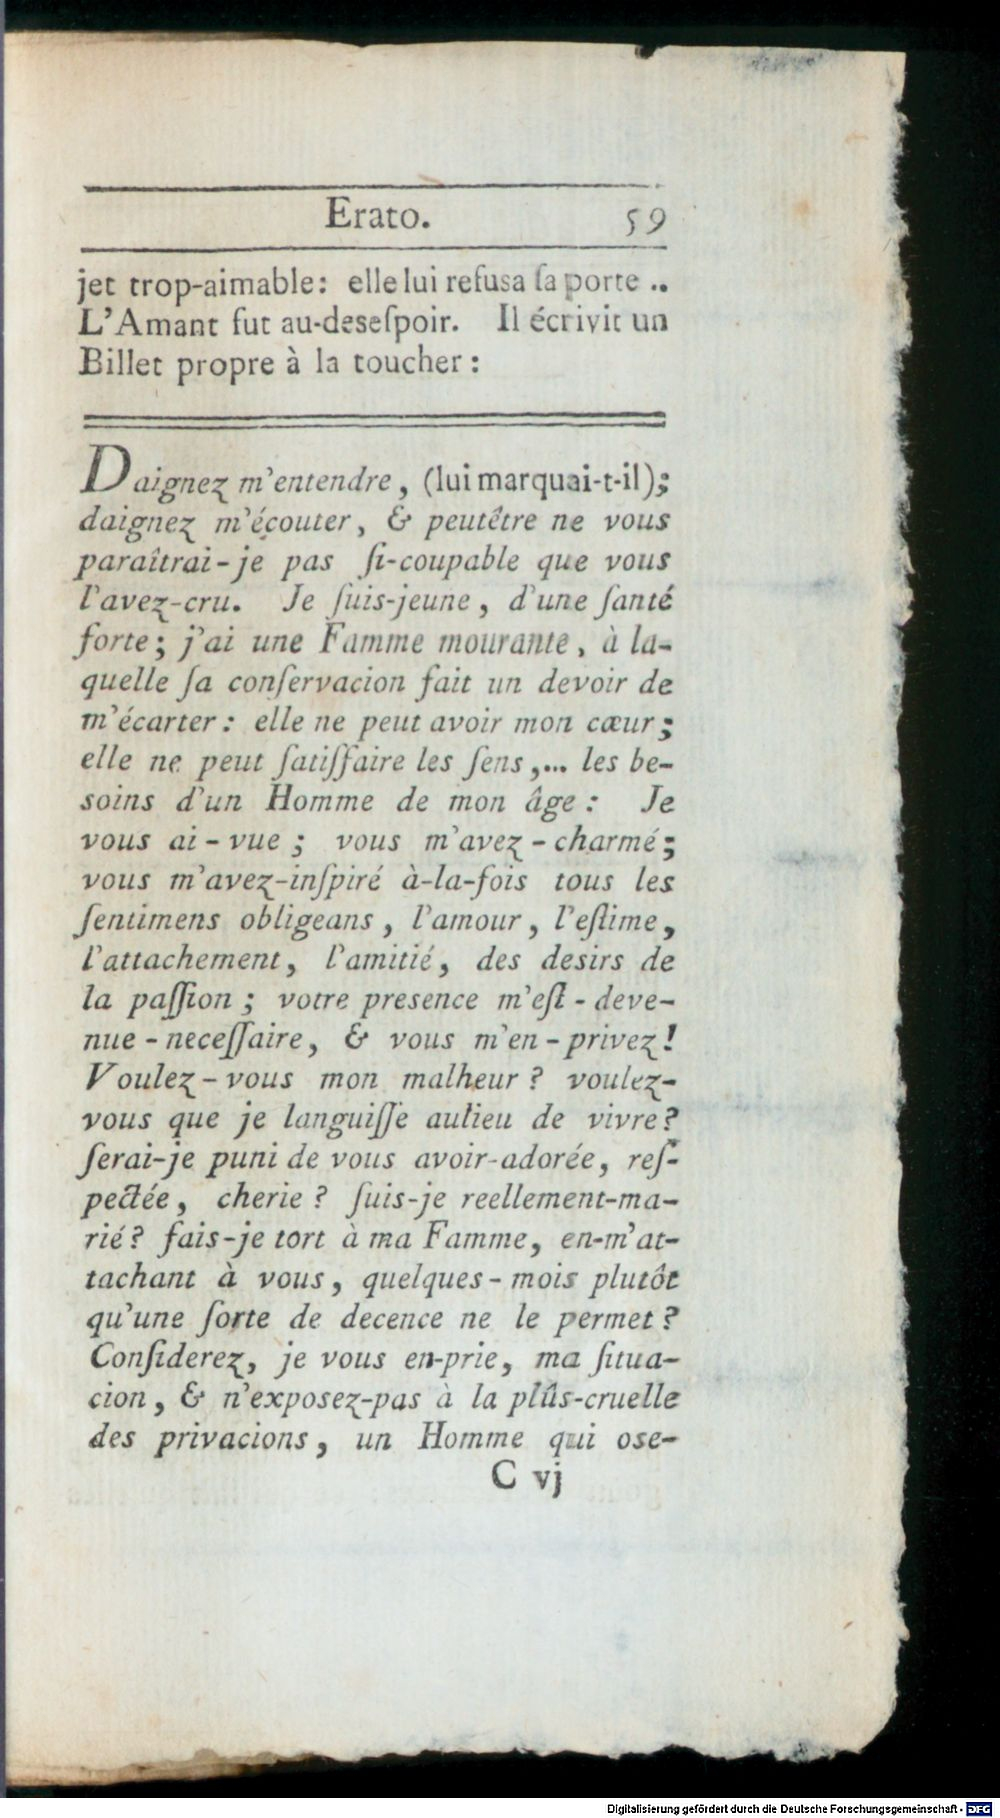 Erato. 59
jet trop-aimable: elle lui refusa ſa porte ..
L'Amant fut au-deseſpoir. Il écrivit un
Billet propre à la toucher :
Daignez m'entendre, (lui marquai-t-il);
daignez m'écouter, & peutêtre ne vous
paraîtrai-je pas ſi-coupable que vous
l'avez-cru. Je ſuis-jeune, d'une ſanté
forte; j'ai une Famme mourante, à la-
quelle ſa conſervacion fait un devoir de
m'écarter: elle ne peut avoir mon cœur;
elle ne peut ſatiſfaire les ſens,... les be-
soins d'un Homme de mon âge: Je
vous ai-vue; vous m'avez-charmé;
vous m'avez-inſpiré à-la-fois tous les
ſentimens obligeans, l'amour, l'eſtime,
l'attachement, l'amitié, des desirs de
la paſſion; votre presence m'eſt-deve-
nue-neceſſaire, & vous m'en-privez!
Voulez-vous mon malheur? voulez-
vous que je languiſſe aulieu de vivre?
ſerai-je puni de vous avoir-adorée, reſ-
pectée, cherie? ſuis-je reellement-ma-
rié? fais-je tort à ma Famme, en-m'at-
tachant à vous, quelques-mois plutôt
qu'une ſorte de decence ne le permet?
Conſiderez, je vous en-prie, ma ſitua-
cion, & n'exposez-pas à la plûs-cruelle
des privacions, un Homme qui ose-
C vj
Digitalisierung gefördert durch die Deutsche Forschungsgemeinschaft - DFG